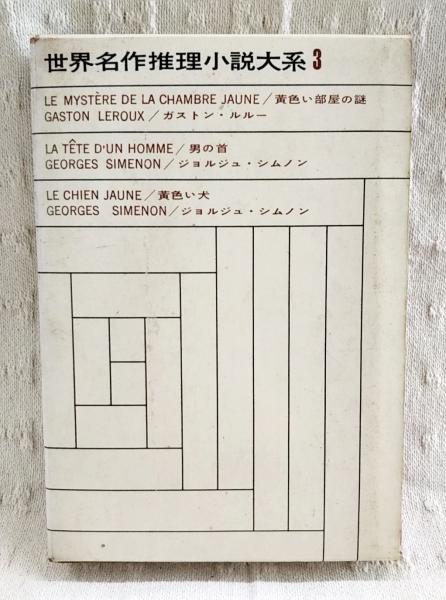 世界名作推理小説大系3
LE MYSTÈRE DE LA CHAMBRE JAUNE/黄色い部屋の謎
GASTON LEROUX/ガストン・ルルー
LA TÊTE D'UN HOMME/男の首
GEORGES SIMENON/ジョルジュ・シムノン
LE CHIEN JAUNE/黄色い犬
GEORGES SIMENON/ジョルジュ・シムノン